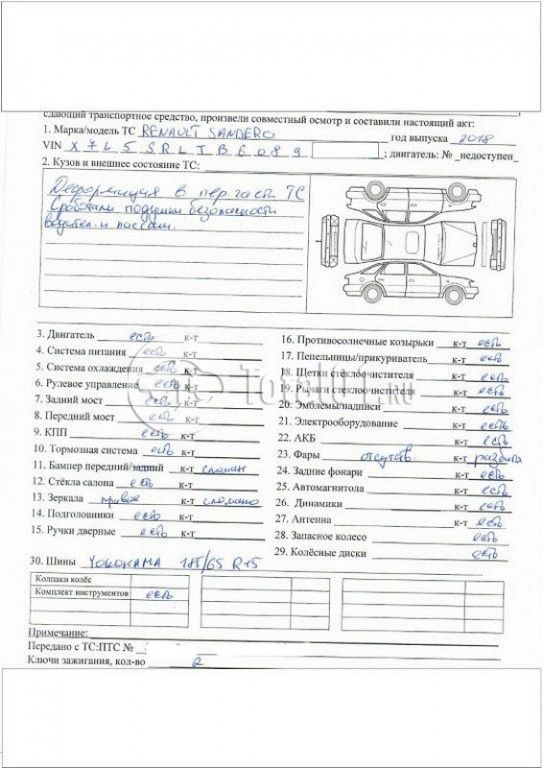 сдающий транспортное средство, произвели совместный осмотр и составили настоящий акт:
1. Марка/модель ТС RENAULT SANDERO год выпуска 2018
VIN X 7 L 5 S R L T B 6 0 8 9 ; двигатель: № _недоступен_
2. Кузов и внешнее состояние ТС:
Деформация в пер. части ТС
Сработали подушки безопасности
водител. и пассаж.
3. Двигатель есть к-т
4. Система питания есть к-т
5. Система охлаждения есть к-т
6. Рулевое управление есть к-т
7. Задний мост есть к-т
8. Передний мост есть к-т
9. КПП есть к-т
10. Тормозная система есть к-т
11. Бампер передний/задний к-т сломан
12. Стёкла салона есть к-т
13. Зеркала правое к-т сломано
14. Подголовники есть к-т
15. Ручки дверные есть к-т
16. Противосолнечные козырьки к-т есть
17. Пепельницы/прикуриватель к-т есть
18. Щетки стеклоочистителя есть
19. Рычаги стеклоочистителя есть
20. Эмблемы/надписи к-т есть
21. Электрооборудование к-т есть
22. АКБ к-т есть
23. Фары отсутств. к-т разбита
24. Задние фонари к-т есть
25. Автомагнитола к-т есть
26. Динамики к-т есть
27. Антенна к-т есть
28. Запасное колесо есть
29. Колёсные диски есть
30. Шины YOKOHAMA 185/65 R15
Колпаки колёс
Комплект инструментов есть
Примечание:
Передано с ТС:ПТС №
Ключи зажигания, кол-во 2